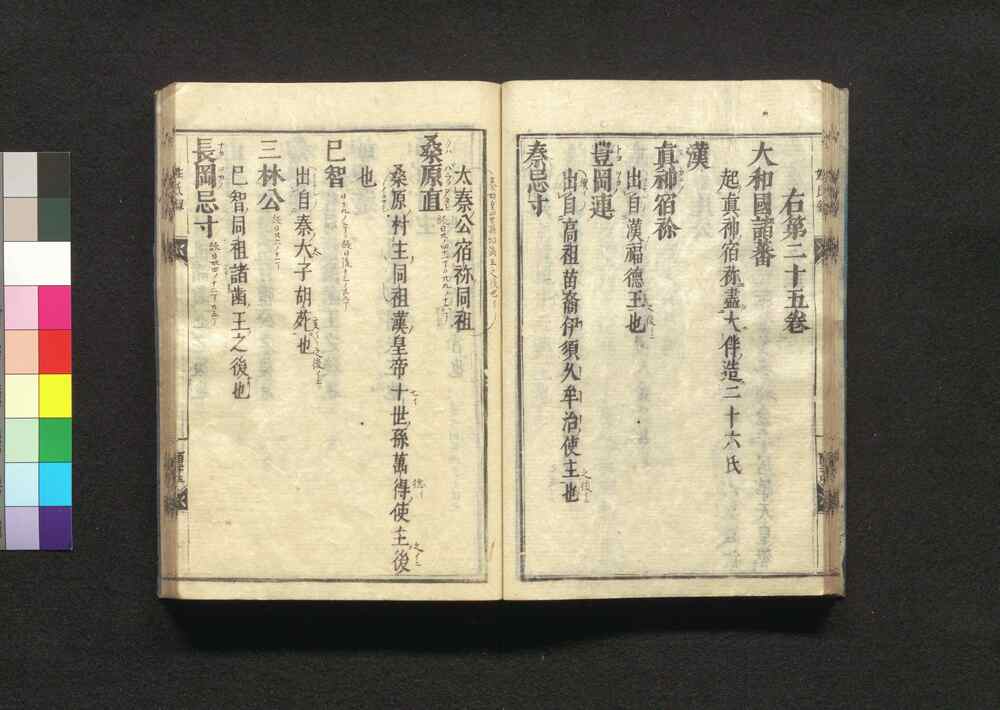 右第二十五卷
大和國諸蕃
起真神宿祢盡大伴造二十六氏
漢
真神宿祢
出自漢福德王也
豊岡連
出自高祖苗裔伊須久牟治使主也
秦忌寸
太秦公宿祢同祖
桑原直
桑原村主同祖漢皇帝十世孫萬得使主後
也
巳智
出自秦大子胡苑也
三林公
巳智同祖諸齒王之後也
長岡忌寸